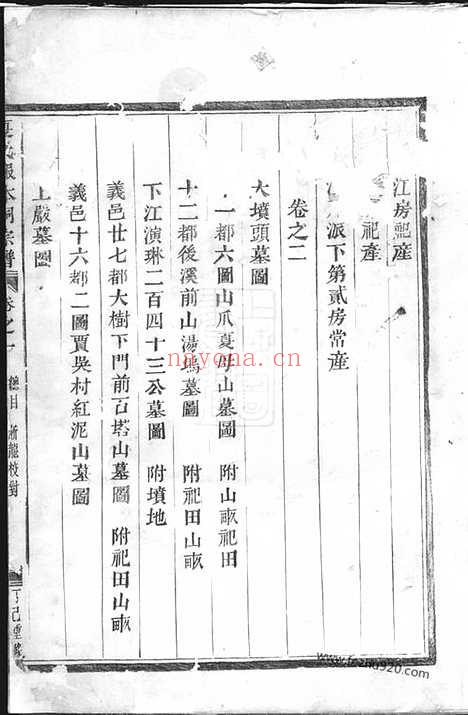 江房祀產
祀產
派下第貳房常產
卷之二
大墳頭墓圖
一都六圖山爪夏母山墓圖 附山畝祀田
十二都後溪前山湯塢墓圖 附祀田山畝
下江演琳二百四十三公墓圖 附墳地
義邑廿七都大樹下門前古塔山墓圖 附祀田山畝
義邑十六都二圖賈吳村紅泥山墓圖
上嚴墓圖
本祠宗譜 卷之一 總目 浙龍校對 丁巳重修
nayona.cn